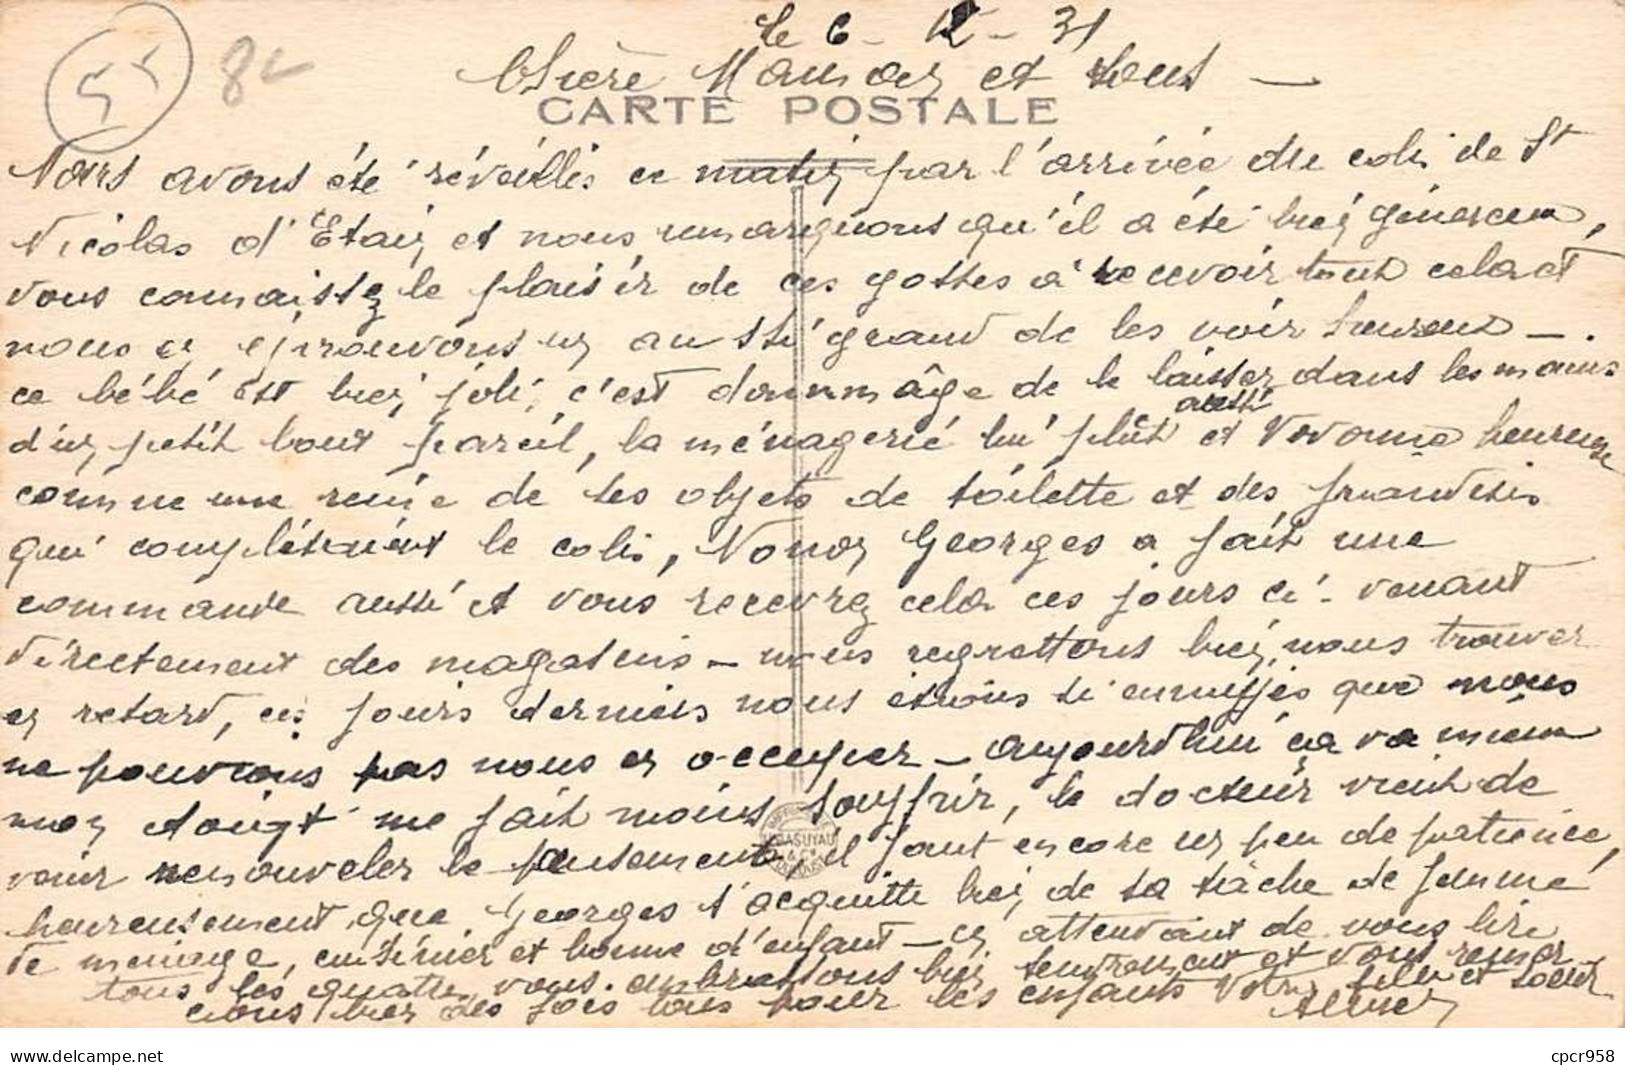 Le 6 - 12 - 31
55 82
Chère Maman et tous —
CARTE POSTALE
Nous avons été réveillés ce matin par l'arrivée du colis de St
Nicolas d'Etain et nous remarquons qu'il a été bien généreux,
vous connaissez le plaisir de ces gosses à recevoir tout cela et
nous en éprouvons un aussi grand de les voir heureux — .
ce bébé est bien joli, c'est dommâge de le laisser dans les mains
d'un petit bout pareil, la ménagerie lui plût aussi et Vovonne heureuse
comme une reine de ses objets de toilette et des friandises
qui complétaient le colis, Nonon Georges a fait une
commande aussi et vous recevrez cela ces jours ci - venant
directement des magasins — nous regrettons bien nous trouver
en retard, ces jours derniers nous étions si ennuyés que nous
ne pouvions pas nous en occuper — aujourd'hui ça va mieux
mon doigt me fait moins souffrir, le docteur vient de
venir renouveler le pansement, il faut encore un peu de patience,
heureusement que Georges s'acquitte bien de sa tâche de femme
de ménage, cuisinier et bonne d'enfant — en attendant de vous lire
tous les quatre vous embrassons bien tendrement et vous remer
cions bien des fois tous pour les enfants Votre fille et soeur